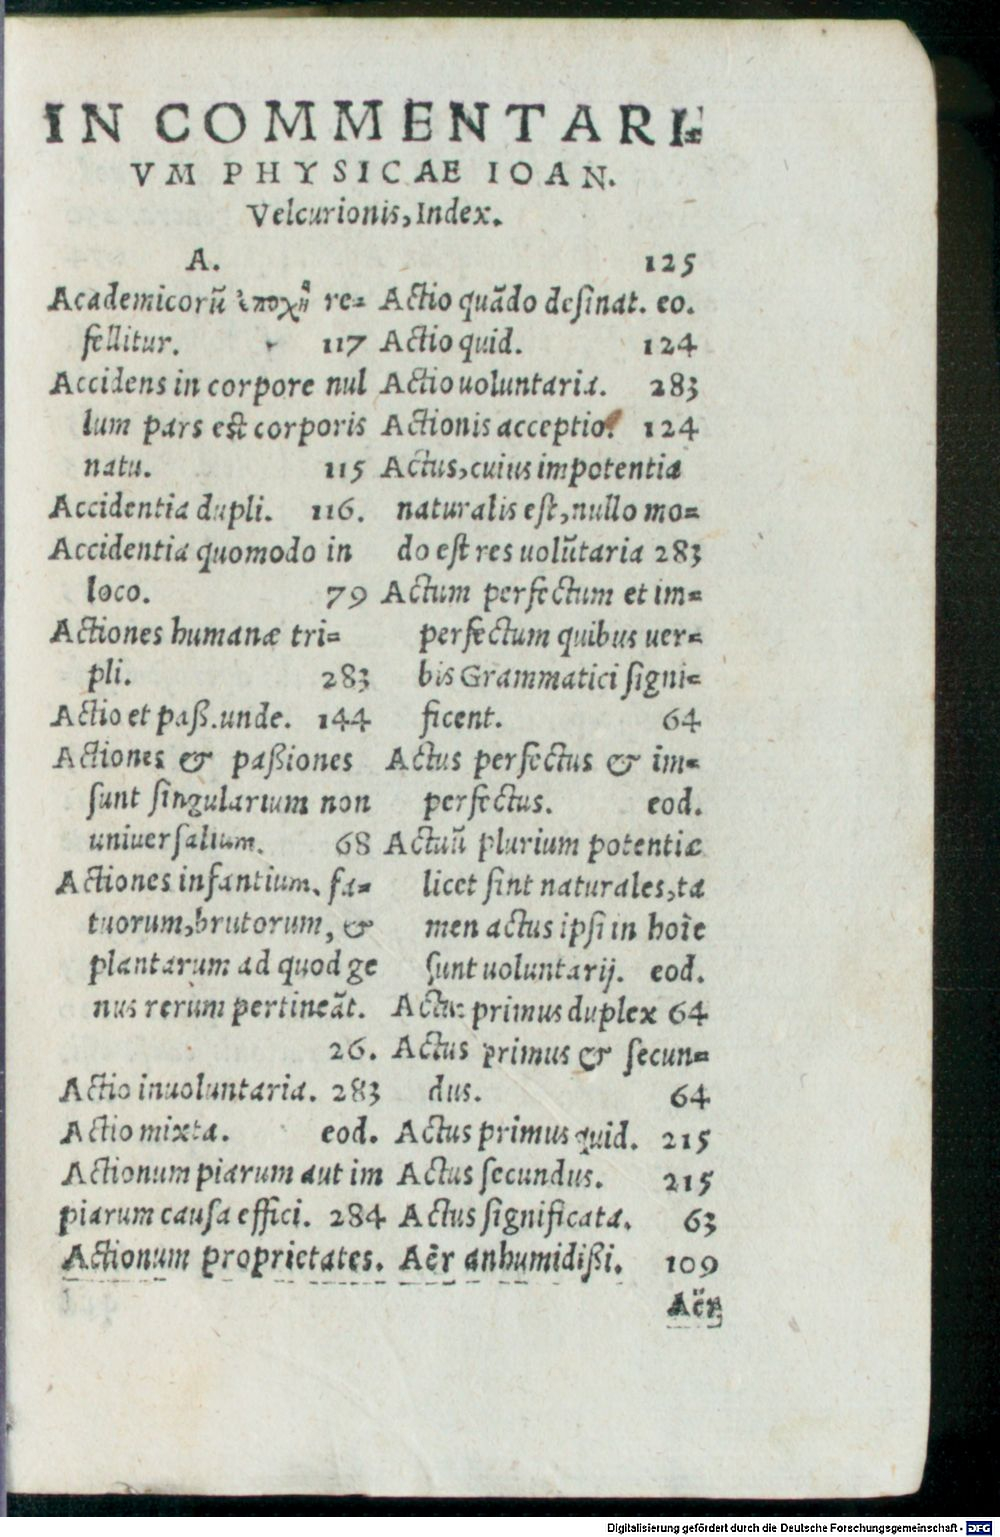 IN COMMENTARI=
VM PHYSICAE IOAN.
Velcurionis, Index.
A.
Academicorū ἐποχὴ re=
fellitur. 117
Accidens in corpore nul
lum pars est corporis
natu. 115
Accidentia dupli. 116.
Accidentia quomodo in
loco. 79
Actiones humanæ tri=
pli. 283
Actio et paß. unde. 144
Actiones & paßiones
sunt singularium non
uniuersalium. 68
Actiones infantium, fa=
tuorum, brutorum, &
plantarum ad quod ge
nus rerum pertineāt.
26.
Actio inuoluntaria. 283
Actio mixta. eod.
Actionum piarum aut im
piarum causa effici. 284
Actionum proprietates.
125
Actio quādo desinat. eo.
Actio quid. 124
Actio uoluntaria. 283
Actionis acceptio. 124
Actus, cuius impotentia
naturalis est, nullo mo=
do est res uolūtaria 283
Actum perfectum et im=
perfectum quibus uer=
bis Grammatici signi=
ficent. 64
Actus perfectus & im=
perfectus. eod.
Actuū plurium potentiæ
licet sint naturales, ta
men actus ipsi in hoīe
sunt uoluntarij. eod.
Actus primus duplex 64
Actus primus & secun=
dus. 64
Actus primus quid. 215
Actus secundus. 215
Actus significata. 63
Aër an humidißi. 109
Aër
Digitalisierung gefördert durch die Deutsche Forschungsgemeinschaft - DFG